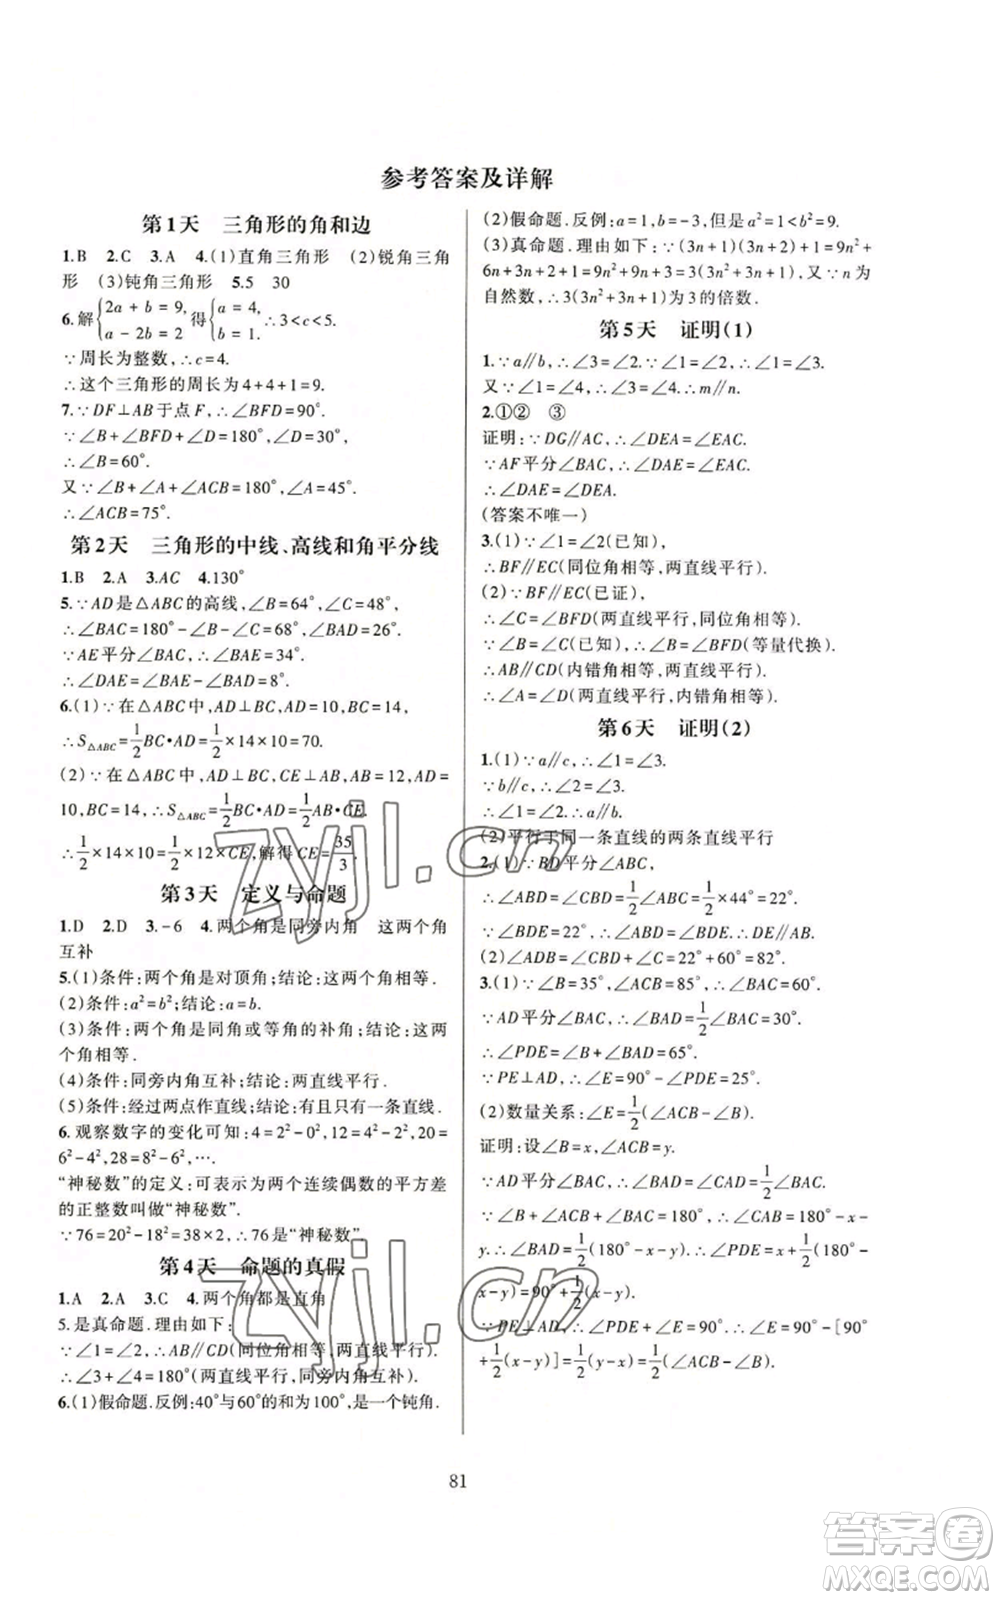 参考答案及详解
第1天 三角形的角和边
1.B 2.C 3.A 4.(1)直角三角形 (2)锐角三角
形 (3)钝角三角形 5.5 30
6.解{2a+b=9, a-2b=2 得{a=4, b=1. ∴3<c<5.
∵周长为整数,∴c=4.
∴这个三角形的周长为4+4+1=9.
7.∵DF⊥AB于点F,∴∠BFD=90°.
∵∠B+∠BFD+∠D=180°,∠D=30°,
∴∠B=60°.
又∵∠B+∠A+∠ACB=180°,∠A=45°.
∴∠ACB=75°.
第2天 三角形的中线、高线和角平分线
1.B 2.A 3.AC 4.130°
5.∵AD是△ABC的高线,∠B=64°,∠C=48°,
∴∠BAC=180°-∠B-∠C=68°,∠BAD=26°.
∵AE平分∠BAC,∴∠BAE=34°.
∴∠DAE=∠BAE-∠BAD=8°.
6.(1)∵在△ABC中,AD⊥BC,AD=10,BC=14,
∴S△ABC=1/2BC·AD=1/2×14×10=70.
(2)∵在△ABC中,AD⊥BC,CE⊥AB,AB=12,AD=
10,BC=14,∴S△ABC=1/2BC·AD=1/2AB·CE.
∴1/2×14×10=1/2×12×CE,解得CE=35/3.
第3天 定义与命题
1.D 2.D 3.-6 4.两个角是同旁内角 这两个角
互补
5.(1)条件:两个角是对顶角;结论:这两个角相等.
(2)条件:a²=b²;结论:a=b.
(3)条件:两个角是同角或等角的补角;结论:这两
个角相等.
(4)条件:同旁内角互补;结论:两直线平行.
(5)条件:经过两点作直线;结论:有且只有一条直线.
6.观察数字的变化可知:4=2²-0²,12=4²-2²,20=
6²-4²,28=8²-6²,….
“神秘数”的定义:可表示为两个连续偶数的平方差
的正整数叫做“神秘数”.
∵76=20²-18²=38×2,∴76是“神秘数”.
第4天 命题的真假
1.A 2.A 3.C 4.两个角都是直角
5.是真命题.理由如下:
∵∠1=∠2,∴AB∥CD(同位角相等,两直线平行).
∴∠3+∠4=180°(两直线平行,同旁内角互补).
6.(1)假命题.反例:40°与60°的和为100°,是一个钝角.
(2)假命题.反例:a=1,b=-3,而a²=1<b²=9.
(3)真命题.理由如下:∵(3n+1)(3n+2)+1=9n²+
6n+3n+2+1=9n²+9n+3=3(3n²+3n+1),又∵n为
自然数,∴3(3n²+3n+1)为3的倍数.
第5天 证明(1)
1.∵a∥b,∴∠3=∠2.∵∠1=∠2,∴∠1=∠3.
又∵∠1=∠4,∴∠3=∠4.∴m∥n.
2.①② ③
证明:∵DG∥AC,∴∠DEA=∠EAC.
∵AF平分∠BAC,∴∠DAE=∠EAC.
∴∠DAE=∠DEA.
(答案不唯一)
3.(1)∵∠1=∠2(已知),
∴BF∥EC(同位角相等,两直线平行).
(2)∵BF∥EC(已证),
∴∠C=∠BFD(两直线平行,同位角相等).
∵∠B=∠C(已知),∴∠B=∠BFD(等量代换).
∴AB∥CD(内错角相等,两直线平行).
∴∠A=∠D(两直线平行,内错角相等).
第6天 证明(2)
1.(1)∵a∥c,∴∠1=∠3.
∵b∥c,∴∠2=∠3.
∴∠1=∠2.∴a∥b.
(2)平行于同一条直线的两条直线平行
2.(1)∵BD平分∠ABC,
∴∠ABD=∠CBD=1/2∠ABC=1/2×44°=22°.
∵∠BDE=22°,∴∠ABD=∠BDE.∴DE∥AB.
(2)∠ADB=∠CBD+∠C=22°+60°=82°.
3.(1)∵∠B=35°,∠ACB=85°,∴∠BAC=60°.
∵AD平分∠BAC,∴∠BAD=1/2∠BAC=30°.
∴∠PDE=∠B+∠BAD=65°.
∵PE⊥AD,∴∠E=90°-∠PDE=25°.
(2)数量关系:∠E=1/2(∠ACB-∠B).
证明:设∠B=x,∠ACB=y.
∵AD平分∠BAC,∴∠BAD=∠CAD=1/2∠BAC.
∵∠B+∠ACB+∠BAC=180°,∴∠CAB=180°-x-
y.∴∠BAD=1/2(180°-x-y).∴∠PDE=∠B+∠BAD=x+1/2(180°-
x-y)=90°+1/2(x-y).
∵PE⊥AD,∴∠PDE+∠E=90°.∴∠E=90°-[90°
+1/2(x-y)]=1/2(y-x)=1/2(∠ACB-∠B).
81
zyjl.cn
zyjl.cn
答案圈
MXQE.COM